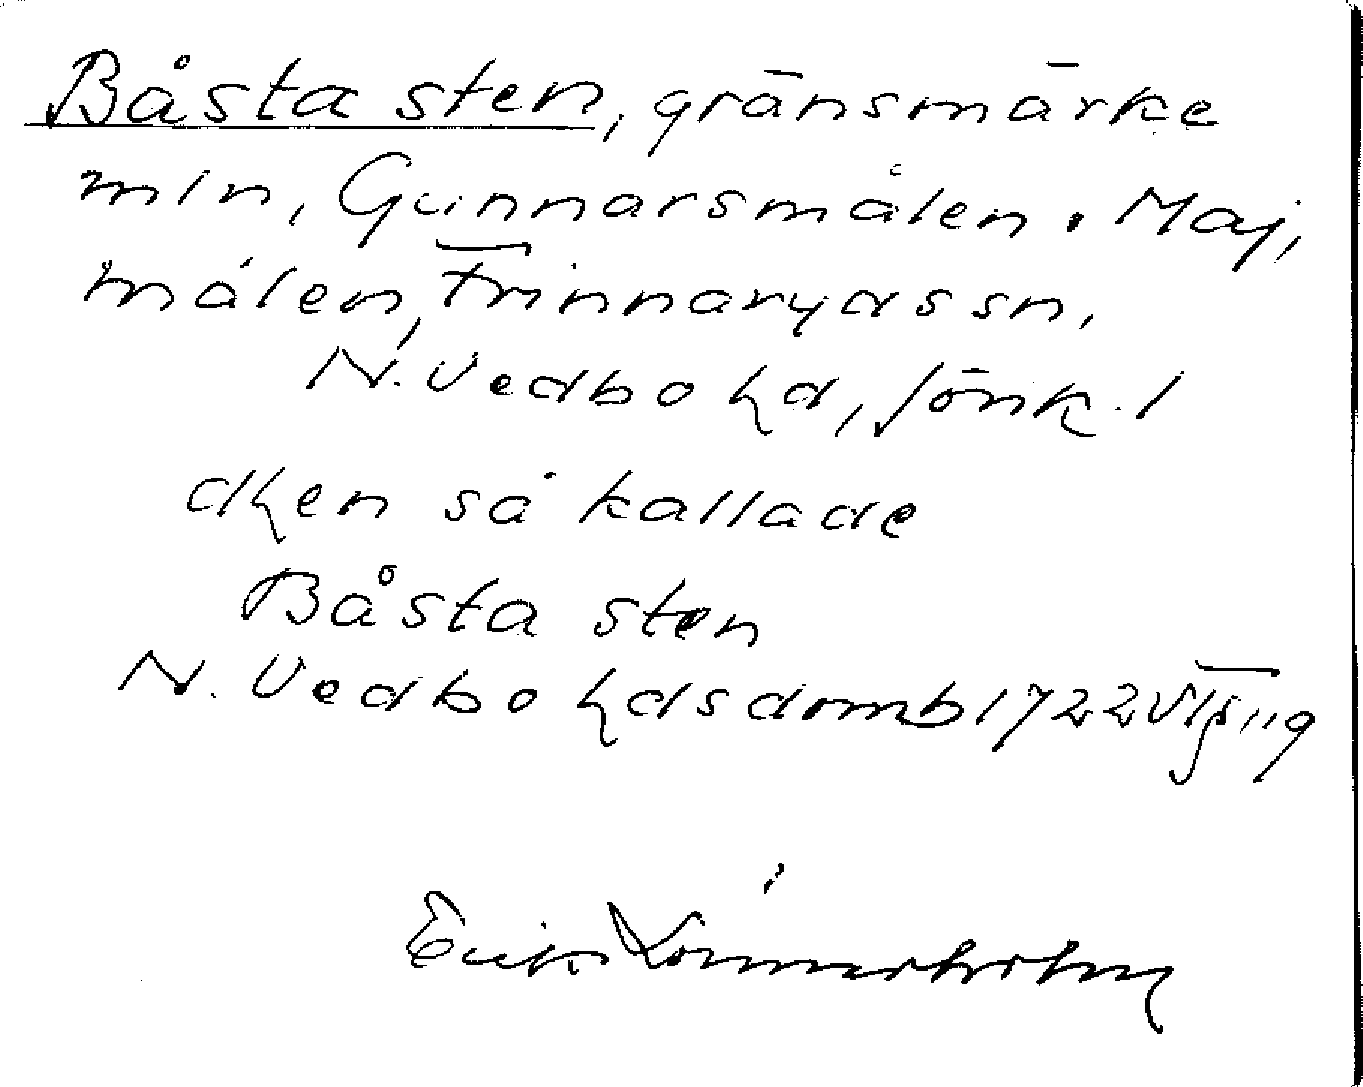 Båsta sten, gränsmärke
mln, Gunnarsmålen o. Maj,
målen, Frinnaryds sn,
N. Vedbo hd, Jönk. l
dhen så kallade
Båsta sten
N. Vedbo hds domb 1722
Erik Lönnerholm